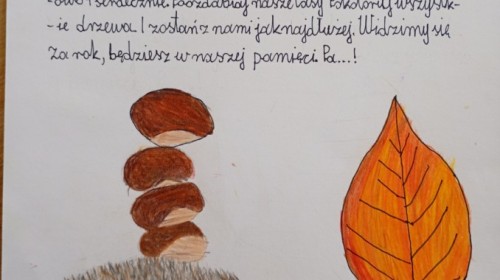 -owo i serdecznie. Poozdabiaj nasze lasy i pokoloruj wszystk-
-ie drzewa. I zostań z nami jak najdłużej. Widzimy się
za rok, będziesz w naszej pamięci. Pa...!